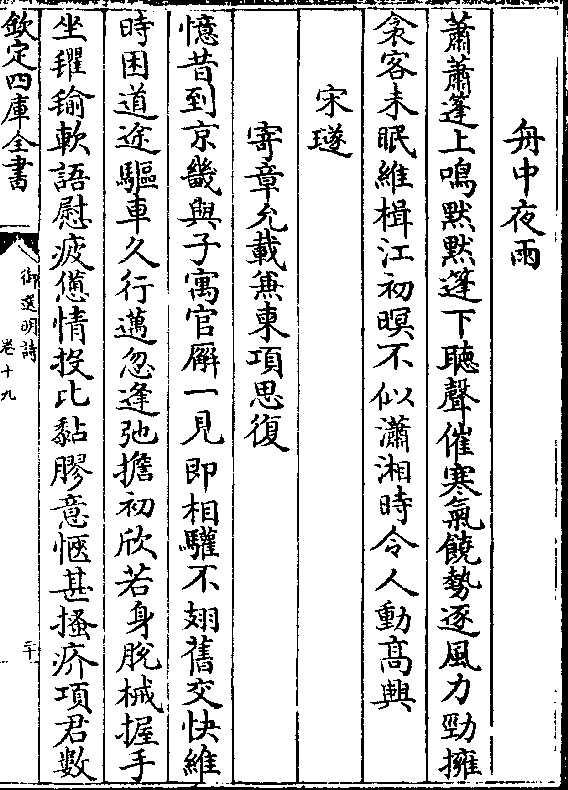 舟中夜雨
蕭蕭篷上鳴黙黙篷下聽聲催寒氣饒勢逐風力勁擁
衾客未眠維楫江初暝不似瀟湘時令人動髙興
宋璲
寄章允載兼柬項思復
憶昔到京畿與子寓官廨一見即相驩不翅舊交快維
時困道途驅車久行邁忽逢弛擔初欣若身脱械握手
坐氍毹軟語慰疲憊情投比黏膠意愜甚搔疥項君數
欽定四庫全書
御選明詩
卷十九
二十